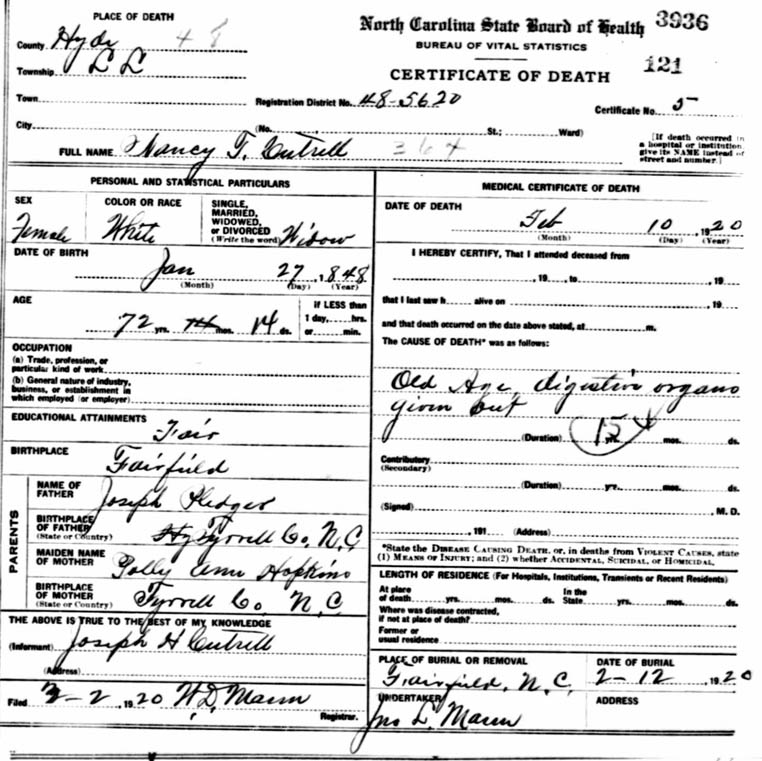 PLACE OF DEATH
North Carolina State Board of Health 3936
County Hyde 48
BUREAU OF VITAL STATISTICS
Township L L
CERTIFICATE OF DEATH 121
Town
Registration District No. 48-5620
Certificate No. 5
City (No. St.; Ward)
[If death occurred in a hospital or institution, give its NAME instead of street and number.]
FULL NAME Nancy T. Cutrell 364
PERSONAL AND STATISTICAL PARTICULARS
SEX
Female
COLOR OR RACE
White
SINGLE,
MARRIED,
WIDOWED,
or DIVORCED
(Write the word) Widow
DATE OF BIRTH
Jan 27, 1848
(Month) (Day) (Year)
AGE
72 yrs. mos. 14 ds.
If LESS than
1 day, hrs.
or min.
OCCUPATION
(a) Trade, profession, or
particular kind of work
(b) General nature of industry,
business, or establishment in
which employed (or employer)
EDUCATIONAL ATTAINMENTS
Fair
BIRTHPLACE
Fairfield
PARENTS
NAME OF
FATHER
Joseph Pledger
BIRTHPLACE
OF FATHER
(State or Country)
Hy Tyrrell Co, N.C
MAIDEN NAME
OF MOTHER
Polly Ann Hopkins
BIRTHPLACE
OF MOTHER
(State or Country)
Tyrrell Co N.C
THE ABOVE IS TRUE TO THE BEST OF MY KNOWLEDGE
(Informant) Joseph H Cutrell
(Address)
Filed 2-2, 1920 W.D. Mann
Registrar.
MEDICAL CERTIFICATE OF DEATH
DATE OF DEATH
Feb 10, 1920
(Month) (Day) (Year)
I HEREBY CERTIFY, That I attended deceased from
, 19 , to , 19
that I last saw h alive on , 19
and that death occurred on the date above stated, at m.
The CAUSE OF DEATH* was as follows:
Old Age, digestive organs
given out
(Duration) 15 yrs. mos. ds.
Contributory
(Secondary)
(Duration) yrs. mos. ds.
(Signed) , M. D.
, 191 (Address)
*State the DISEASE CAUSING DEATH, or, in deaths from VIOLENT CAUSES, state
(1) MEANS OF INJURY; and (2) whether ACCIDENTAL, SUICIDAL, OR HOMICIDAL.
LENGTH OF RESIDENCE (For Hospitals, Institutions, Transients or Recent Residents)
At place
of death yrs. mos. ds.
In the
State yrs. mos. ds.
Where was disease contracted,
if not at place of death?
Former or
usual residence
PLACE OF BURIAL OR REMOVAL
Fairfield, N.C.
DATE OF BURIAL
2-12, 1920
UNDERTAKER
Jno L. Mann
ADDRESS